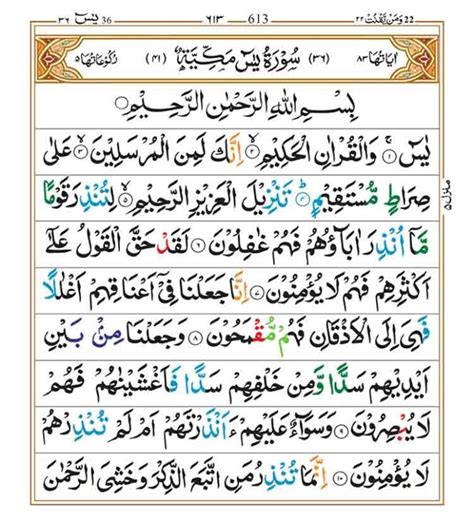 یٰسٓ ٣٦ ٦١٣ 613 ٢٢ وَمَنْ یَّقْنُتْ 22 36
اٰیَاتُهَا ٨٣ (٣٦) سُوْرَةُ یٰسٓ مَكِّیَّةٌ (٤١) رُكُوْعَاتُهَا ٥
بِسْمِ اللّٰهِ الرَّحْمٰنِ الرَّحِیْمِ
یٰسٓ ۝١ وَالْقُرْاٰنِ الْحَكِیْمِ ۝٢ اِنَّكَ لَمِنَ الْمُرْسَلِیْنَ ۝٣ عَلٰى
صِرَاطٍ مُّسْتَقِیْمٍ ۝٤ تَنْزِیْلَ الْعَزِیْزِ الرَّحِیْمِ ۝٥ لِتُنْذِرَ قَوْمًا
مَّاۤ اُنْذِرَ اٰبَآؤُهُمْ فَهُمْ غٰفِلُوْنَ ۝٦ لَقَدْ حَقَّ الْقَوْلُ عَلٰۤى
اَكْثَرِهِمْ فَهُمْ لَا یُؤْمِنُوْنَ ۝٧ اِنَّا جَعَلْنَا فِیْۤ اَعْنَاقِهِمْ اَغْلٰلًا
فَهِیَ اِلَى الْاَذْقَانِ فَهُمْ مُّقْمَحُوْنَ ۝٨ وَجَعَلْنَا مِنْۢ بَیْنِ
اَیْدِیْهِمْ سَدًّا وَّمِنْ خَلْفِهِمْ سَدًّا فَاَغْشَیْنٰهُمْ فَهُمْ
لَا یُبْصِرُوْنَ ۝٩ وَسَوَآءٌ عَلَیْهِمْ ءَاَنْذَرْتَهُمْ اَمْ لَمْ تُنْذِرْهُمْ
لَا یُؤْمِنُوْنَ ۝١٠ اِنَّمَا تُنْذِرُ مَنِ اتَّبَعَ الذِّكْرَ وَخَشِیَ الرَّحْمٰنَ
منزل ٥